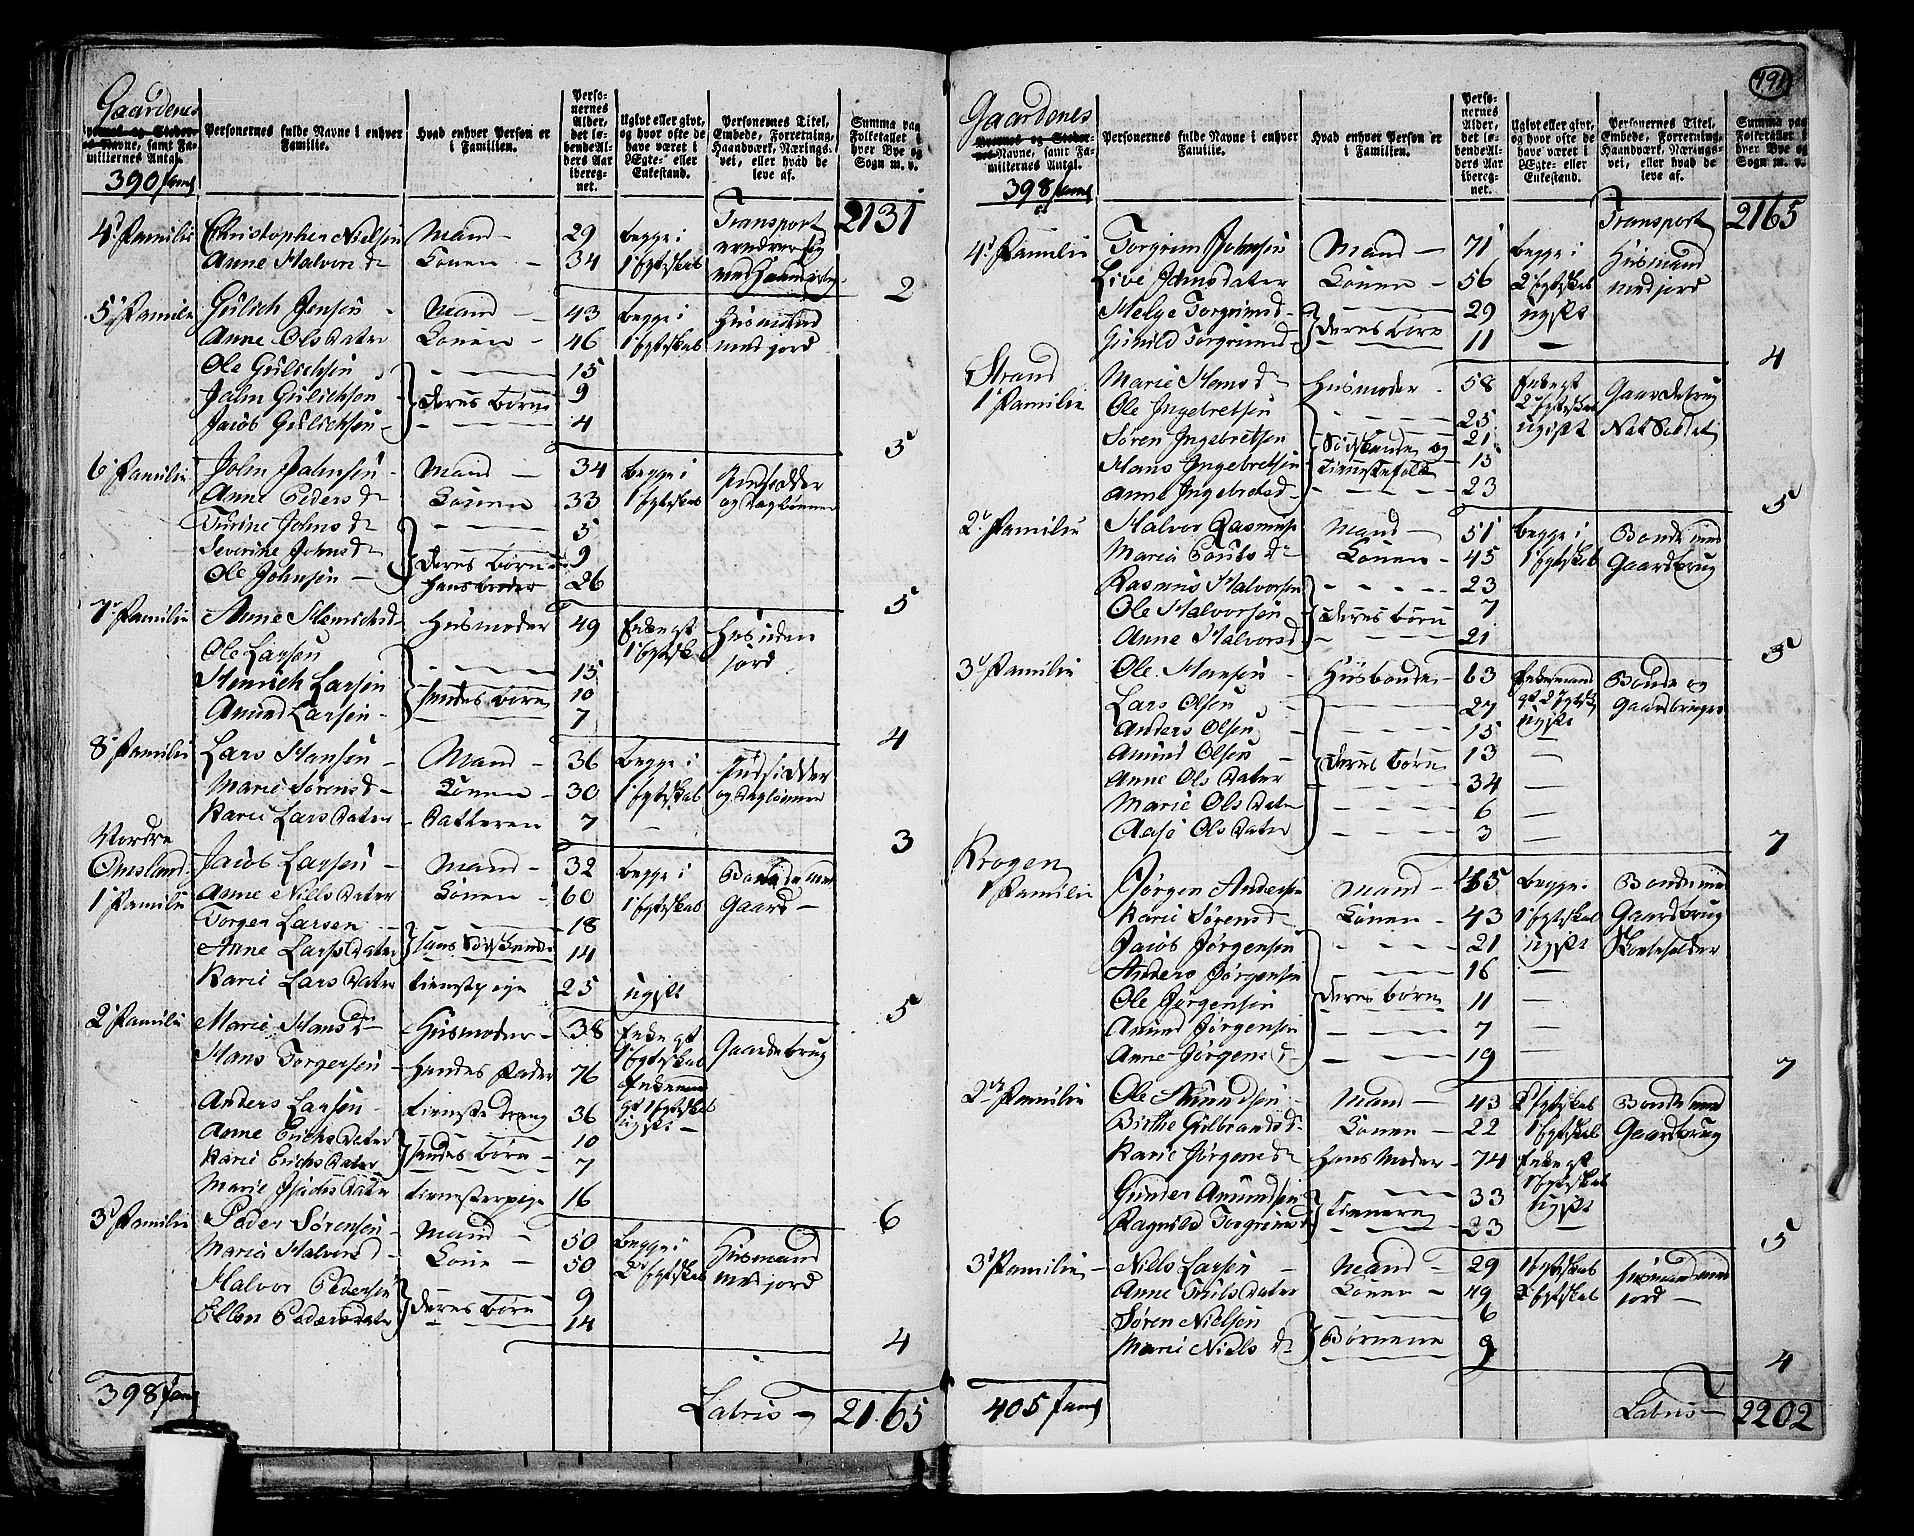 Gaardenes
Byernes og Steder-
nes Navne, samt Fa-
miliernes Antal.
Personernes fulde Navne i enhver
Familie.
Hvad enhver Person er
i Familien.
Perso-
nernes
Alder,
det lø-
bende Al-
ders Aar
iberegnet.
Ugivt eller givt,
og hvor ofte de
have været i
Ægte- eller
Enkestand.
Personernes Titel,
Embede, Forretning,
Haandværk, Nærings-
vei, eller hvad de
leve af.
Summa paa
Folketallet i
hver Bye og
Sogn m. v.
390 fam
Transport 2131
4 Familie Christopher Nielsen Mand 29 begge i
Anne Halvors d 34 1 Egteskab 2
5 Familie Gulich Jensen Mand 43 begge i Huusmand
Anne Olsdater Konen 46 1 Egteskab med jord
Ole Gulichsen 15
John Gulichsen deres børn 9
Jacob Gulichsen 4
5
6 Familie John Johnsen Mand 34 begge i Indsidder
Anne Peders d Konen 33 1 Egteskab og Daglønner
Johns d 5
Severine Johns d deres børn 9
Ole Johnsen hans broder 26
5
7 Familie Anne Henrichsd Husmoder 49 Enke 1 Egtesk Hus uden
Ole Larsen jord
Henrich Larsen 15
hendes børn 10
Amund Larsen 7
4
8 Familie Lars Hansen Mand 36 begge i Indsidder
Marie Sørensd Konen 30 1 Egteskab og Daglønner
Karie Larsdater Datteren 7
3
Nordre
Omsland
1 Familie Jacob Larsen Mand 32 begge i Bonde med
Anne Nielsdater Konen 60 1 Egteskab Gaard
Torger Larsen 18
Anne Larsdater hans Sødskende 14
Karie Larsdater tienstepige 25 ugift
5
2 Familie Marie Hansd Husmoder 38 Enke Gaardebrug
1 Egteskab
Hans Torgersen Hendes Fader 76 Enkemand
Anders Larsen tienstedreng 36 ugift
Anne Erichsdater 10
Karie Erichsdater hendes børn 7
Marie dater tienstepige 16
6
3 Familie Peder Sørensen Mand 50 begge i Huusmand
Maria Halvors d Kone 50 2 Egteskab med jord
Halvor Pedersen 9
Ellen Pedersdater deres børn 14
4
398 fam Latus 2165
491
Gaardenes
Byernes og Steder-
nes Navne, samt Fa-
miliernes Antal.
Personernes fulde Navne i enhver
Familie.
Hvad enhver Person er
i Familien.
Perso-
nernes
Alder,
det lø-
bende Al-
ders Aar
iberegnet.
Ugivt eller givt,
og hvor ofte de
have været i
Ægte- eller
Enkestand.
Personernes Titel,
Embede, Forretning,
Haandværk, Nærings-
vei, eller hvad de
leve af.
Summa paa
Folketallet i
hver Bye og
Sogn m. v.
398 fam
Transport 2165
4 Familie Torgrim Johnsen Mand 71 begge i Husmand
Live Johnsdater Konen 56 2 Egteskab med jord
Helge Torgrimsd 29 ugift
Gunild Torgrimsd deres børn 11
4
Strand
1 Familie Marie Hans d Husmoder 58 Enke Gaardebrug
Ole Ingebretsen 25 ugift Nat Soldat
Søren Ingebretsen Sødskende og 21
Hans Ingebretsen tienestefolk 15
Anne Ingebretsd 23
5
2 Familie Halvor Rasmusen Mand 51 begge i Bonde med
Maria d Konen 45 1 Egteskab Gaardbrug
Rasmus Halvorsen 23
Ole Halvorsen deres børn 7
Anne Halvorsd 21
5
3 Familie Ole Hansen Huusbonde 63 Enkemand Bonde og
Lars Olsen 27 ugift Gaardbruger
Anders Olsen 15
Amund Olsen deres børn 13
Anne Olsdater 34
Marie Olsdater 6
Aase Olsdater 3
7
Krogen
1 Familie Jørgen Andersen Mand 45 begge i Bonde med
Karie Sørensd Konen 43 1 Egteskab Gaardbrug
Jacob Jørgensen 21 ugift
Anders Jørgensen 16
Ole Jørgensen deres børn 11
Amund Jørgensen 7
Anne Jørgens d 19
7
2 Familie Ole Amundsen Mand 43 2 Egteskab Bonde med
Birthe Gulbrandsd Konen 22 1 Egteskab Gaardbrug
Karie Jørgensd Hans Moder 74 Enke
1 Egteskab
Gunder Amundsen 33 ugift
Ragnild Torgrimsd tienere 23
5
3 Familie Niels Larsen Mand 29 1 Egteskab Huusmand med
Anne dater Konen 49 2 Egteskab jord
Søren Nielsen 6
Marie Niels d Børnene 9
4
405 fam Latus 2202